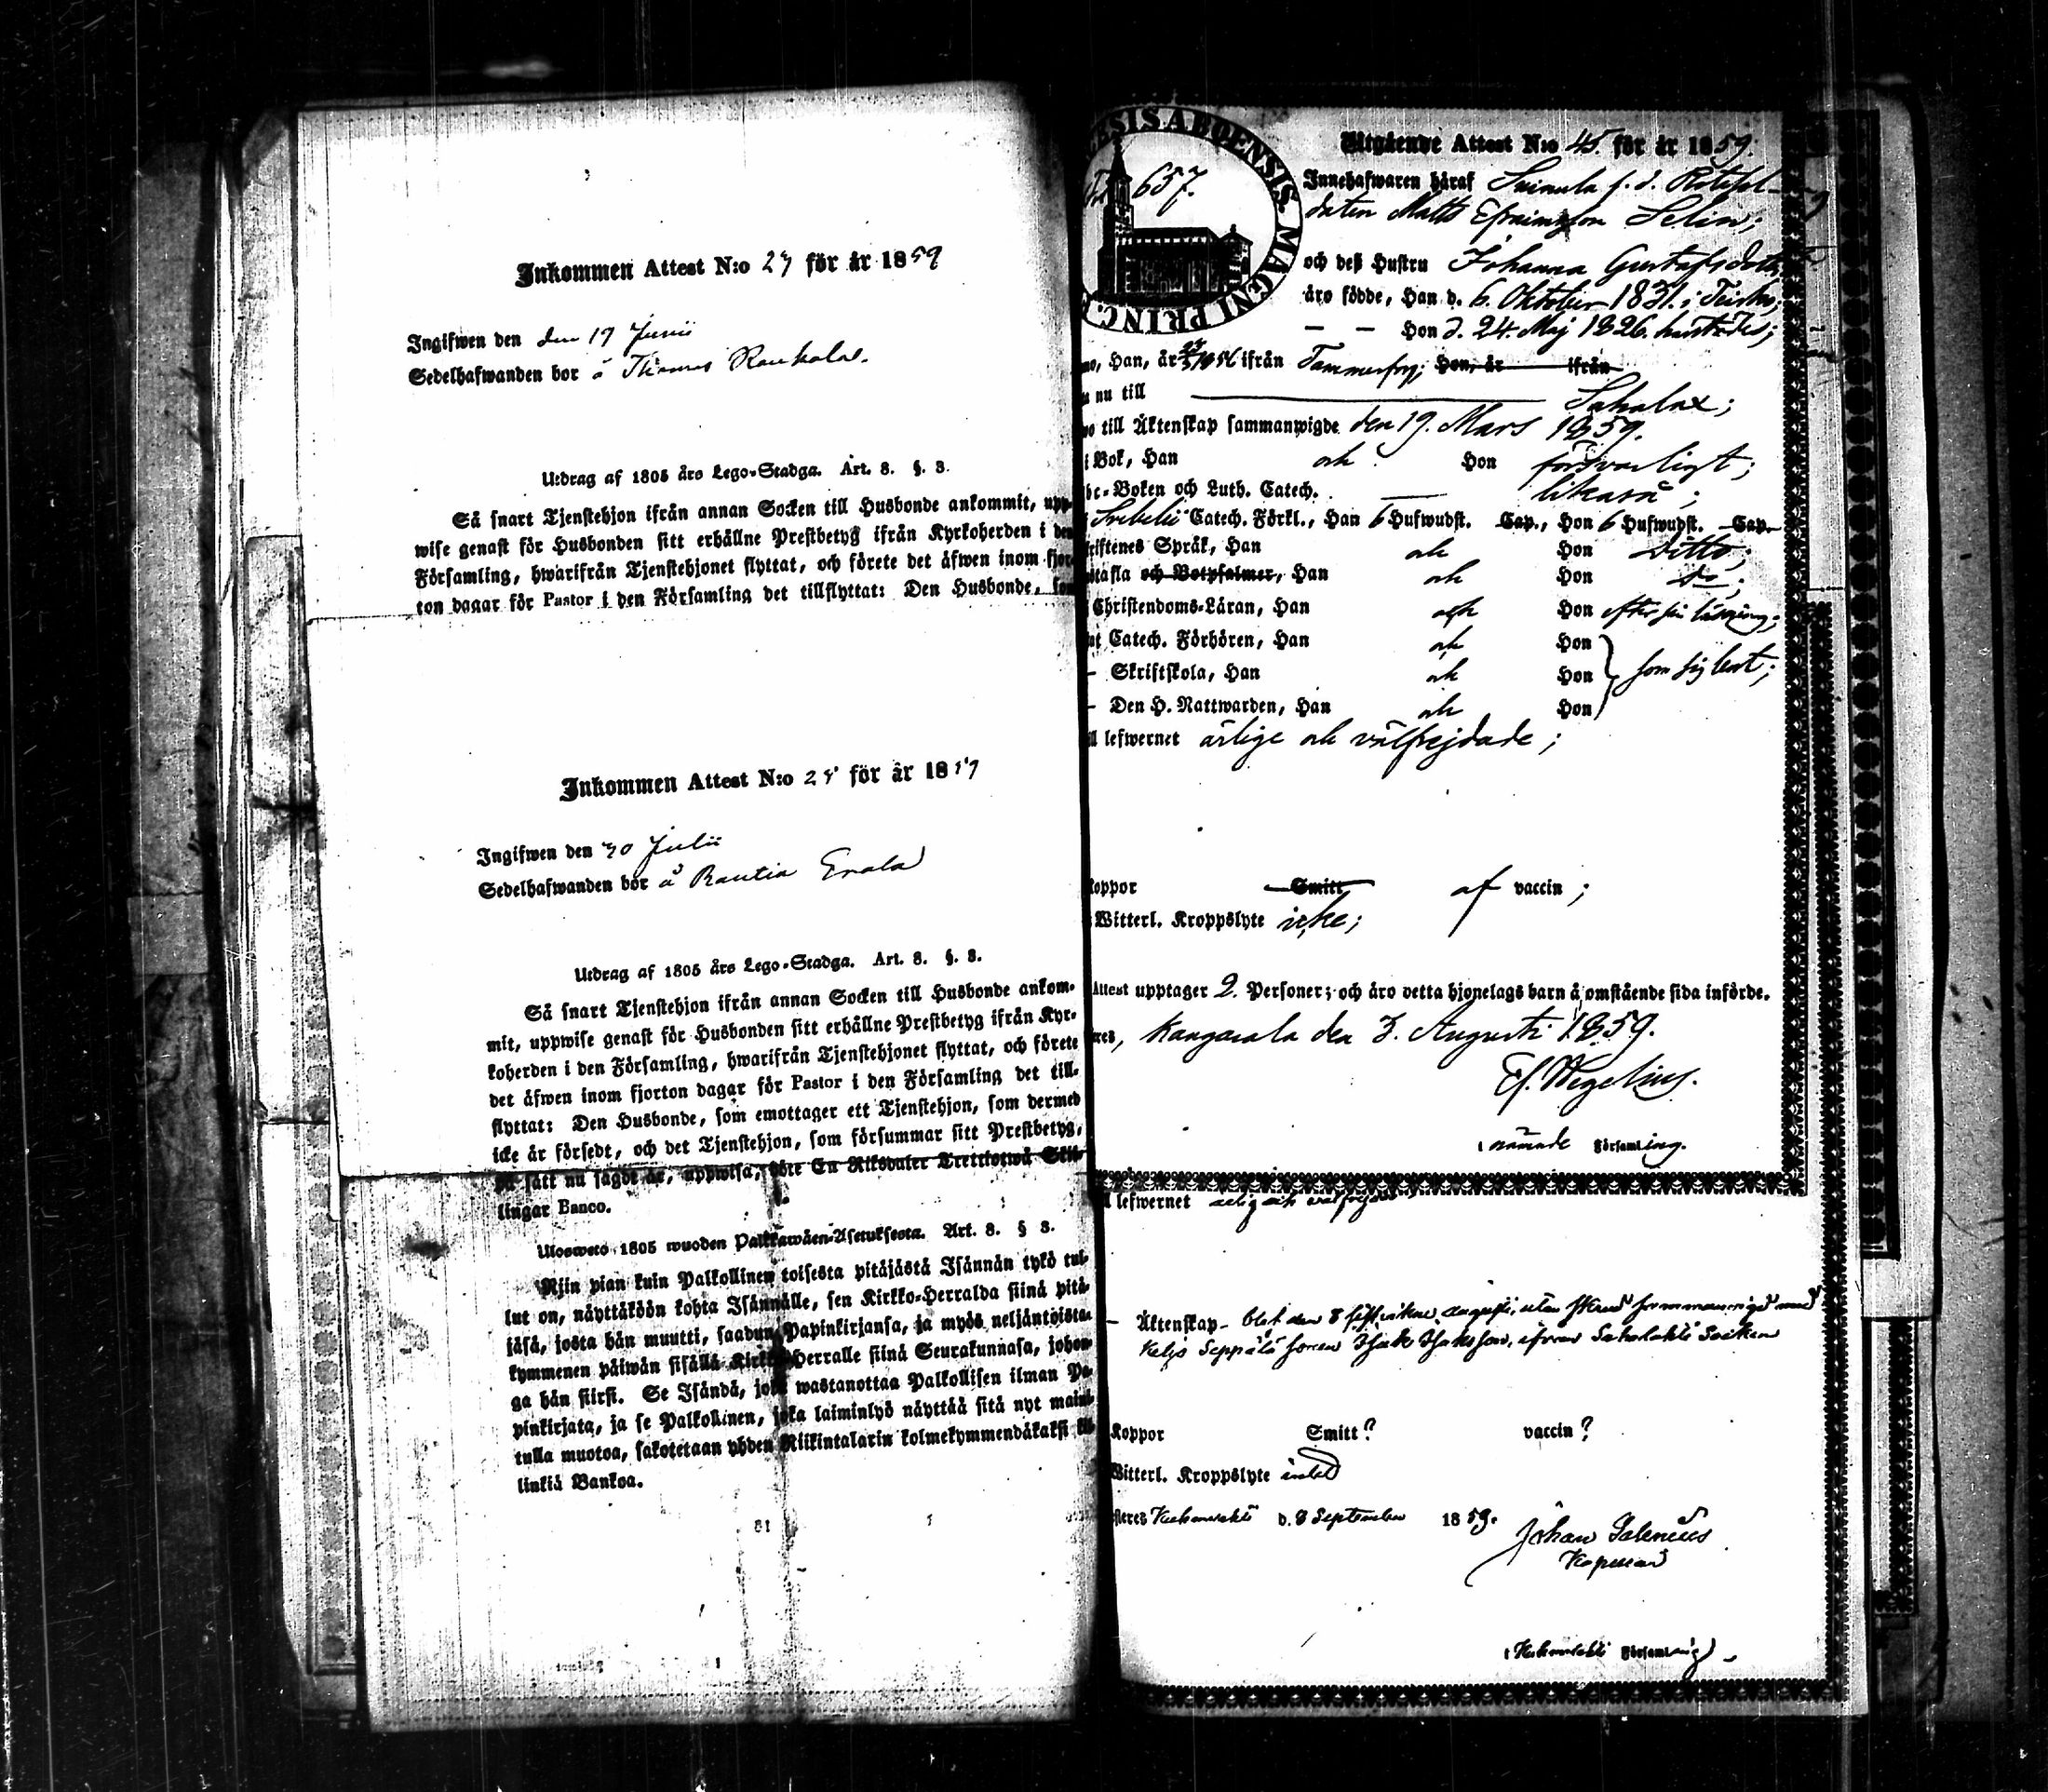 Inkommen Attest N:o 27 för år 1859
Ingifwen den den 17 Junii
Sedelhafwanden bor å Thomas Raukala.
Utdrag af 1805 års Lego-Stadga. Art. 8. §. 3.
Så snart Tjenstehjon ifrån annan Socken till Husbonde ankommit, upp-
wise genast för Husbonden sitt erhållne Prestbetyg ifrån Kyrkoherden i den
Församling, hwarifrån Tjenstehjonet flyttat, och förete det äfwen inom fjor-
ton dagar för Pastor i den Församling det tillflyttat: Den Husbonde, som
Inkommen Attest N:o 28 för år 1859
Ingifwen den 30 Julii
Sedelhafwanden bor å Rautia Erala
Utdrag af 1805 års Lego-Stadga. Art. 8. §. 3.
Så snart Tjenstehjon ifrån annan Socken till Husbonde ankom-
mit, uppwise genast för Husbonden sitt erhållne Prestbetyg ifrån Kyr-
koherden i den Församling, hwarifrån Tjenstehjonet flyttat, och förete
det äfwen inom fjorton dagar för Pastor i den Församling det till-
flyttat: Den Husbonde, som emottager ett Tjenstehjon, som dermed
icke är försedt, och det Tjenstehjon, som försummar sitt Prestbetyg,
på sätt nu sagdt är, uppwisa, böte En Riksdaler Trettiotwå Skil-
lingar Banco.
Ulosweto 1805 wuoden Palkkawäen-Asetuksesta. Art. 8. § 3.
Niin pian kuin Palkollinen toisesta pitäjästä Isännän tykö tul-
lut on, näyttäköön kohta Isännälle, sen Kirkko-Herralda siinä pitä-
jäsä, josta hän muutti, saadun Papinkirjansa, ja myös neljäntoista-
kymmenen päiwän sisällä Kirkko-Herralle siinä Seurakunnasa, johon-
ga hän siirsi. Se Isändä, joka wastanottaa Palkollisen ilman Pa-
pinkirjata, ja se Palkollinen, joka laiminlyö näyttää sitä nyt maini-
tulla muotoa, sakotetaan yhden Riikintalarin kolmekymmendäkaksi kil-
linkiä Bankoa.
ESIS ABOENSIS MAGNI PRINC.
657.
Utgående Attest N:o 45. för år 1859.
Innehafwaren häraf Suinula f. d. Rotesol-
daten Matts Efraimsson Selin;
och deß Hustru Johanna Gustafsdotter
äro födde, Han d. 6. Oktober 1831. i Teisko;
— — Hon d. 24. Maj 1826. härstädes;
Han, år 1856 ifrån Tammerfors; Hon, år ifrån
nu till Sahalax;
till Äktenskap sammanwigde den 19. Mars 1859.
i Bok, Han och Hon försvarligt;
bc-Boken och Luth. Catech. — likaså;
Svebelii Catech. Förkl., Han 6 Hufwudst. Cap., Hon 6 Hufwudst. Cap.
riftenes Språk, Han och Hon Ditto;
stafla och Botpsalmer, Han och Hon do;
Christendoms-Läran, Han och Hon efter sin läsning;
Catech. Förhören, Han och Hon
— Skriftskola, Han och Hon som sig bort;
— Den H. Nattwarden, Han och Hon
ill lefwernet ärlige och välfrejdade;
koppor Smitt af vaccin;
Witterl. Kroppslyte icke;
Attest upptager 2. Personer; och äro detta hjonelags barn å omstående sida införde.
Kangasala den 3. Augusti 1859.
Ef. Wegelius.
nämnde Församling.
lefwernet ärlig och välfrejdad
— Äktenskap
Koppor Smitt? vaccin?
Witterl. Kroppslyte intet
d. 8 September 1859.
Johan Salenius
Kapellan
Församling